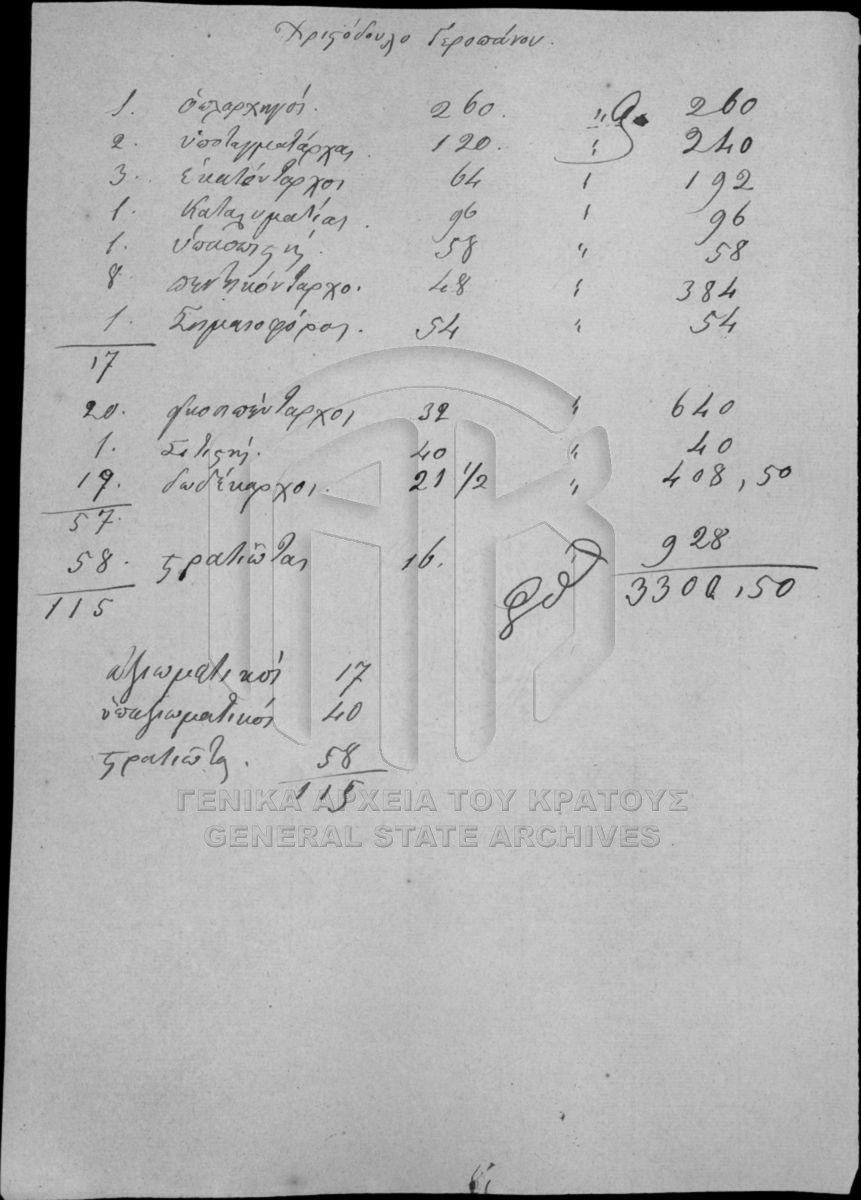 Χριστόδουλο Γεροπάνου.
1. ὁπλαρχηγοί. 260. " 260
2. ὑποταγματάρχαι 120. " 240
3. ἑκατόνταρχοι 64 " 192
1. Καταλυματίας. 96 " 96
1. ὑπασπιστής. 58 " 58
8 πεντηκόνταρχοι. 48 " 384
1. Σημαιοφόρος. 54 " 54
17
20. εἰκοσιπένταρχοι 32 " 640
1. Σιτιστής. 40 " 40
19. δωδέκαρχοι. 21 1/2 " 408,50
57.
58. στρατιῶται 16. 928
115 3300,50
ἀξιωματικοί 17
ὑπαξιωματικοί 40
στρατιῶται. 58
115
ΓΕΝΙΚΑ ΑΡΧΕΙΑ ΤΟΥ ΚΡΑΤΟΥΣ
GENERAL STATE ARCHIVES